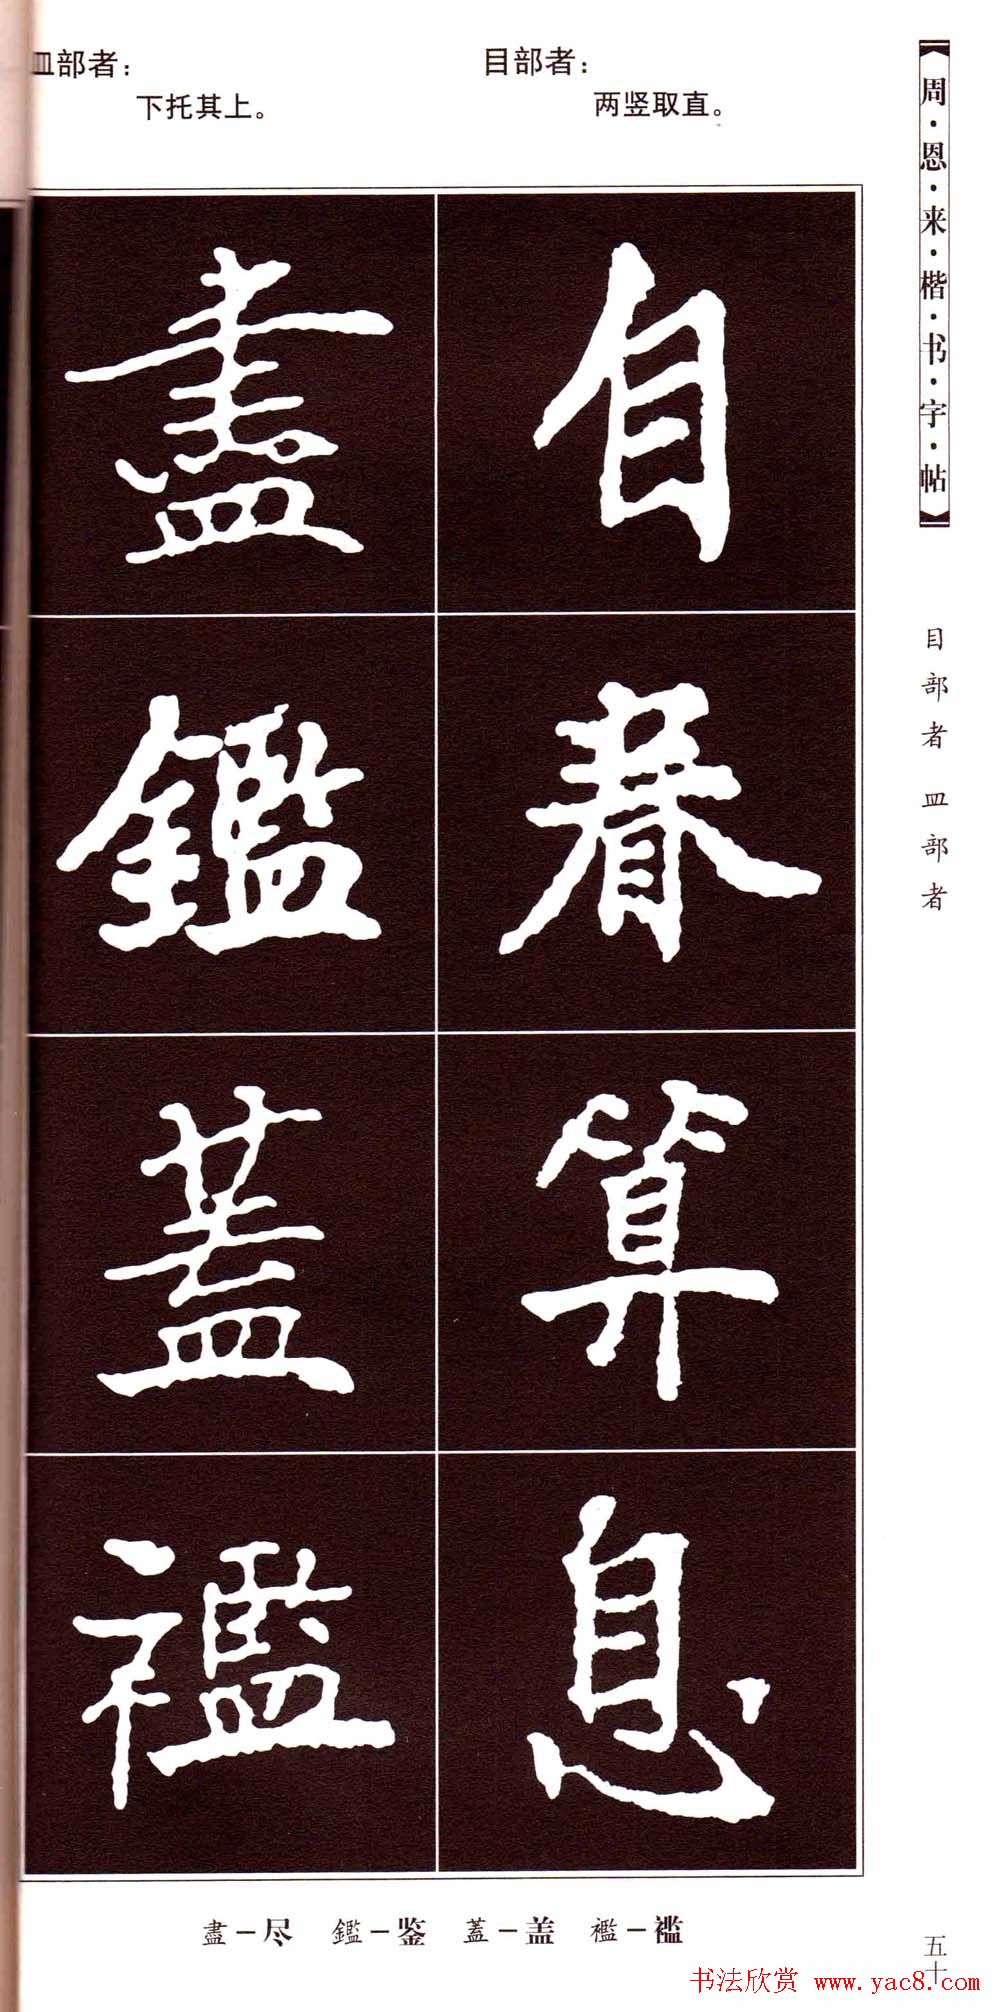 目部者：
两竖取直。
皿部者：
下托其上。
《周·恩·来·楷·书·字·帖》
目部者 皿部者
自
春
算
息
盡
鑑
蓋
襤
盡－尽 鑑－鉴 蓋－盖 襤－褴
五十
书法欣赏 www.yac8.com